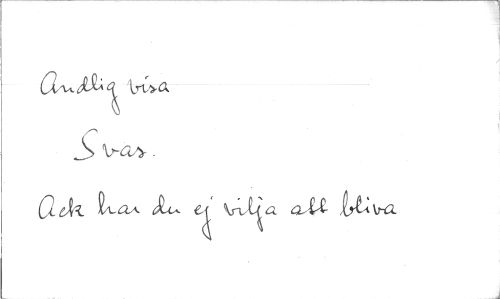 Andlig visa
Svas.
Ack har du ej vilja att bliva